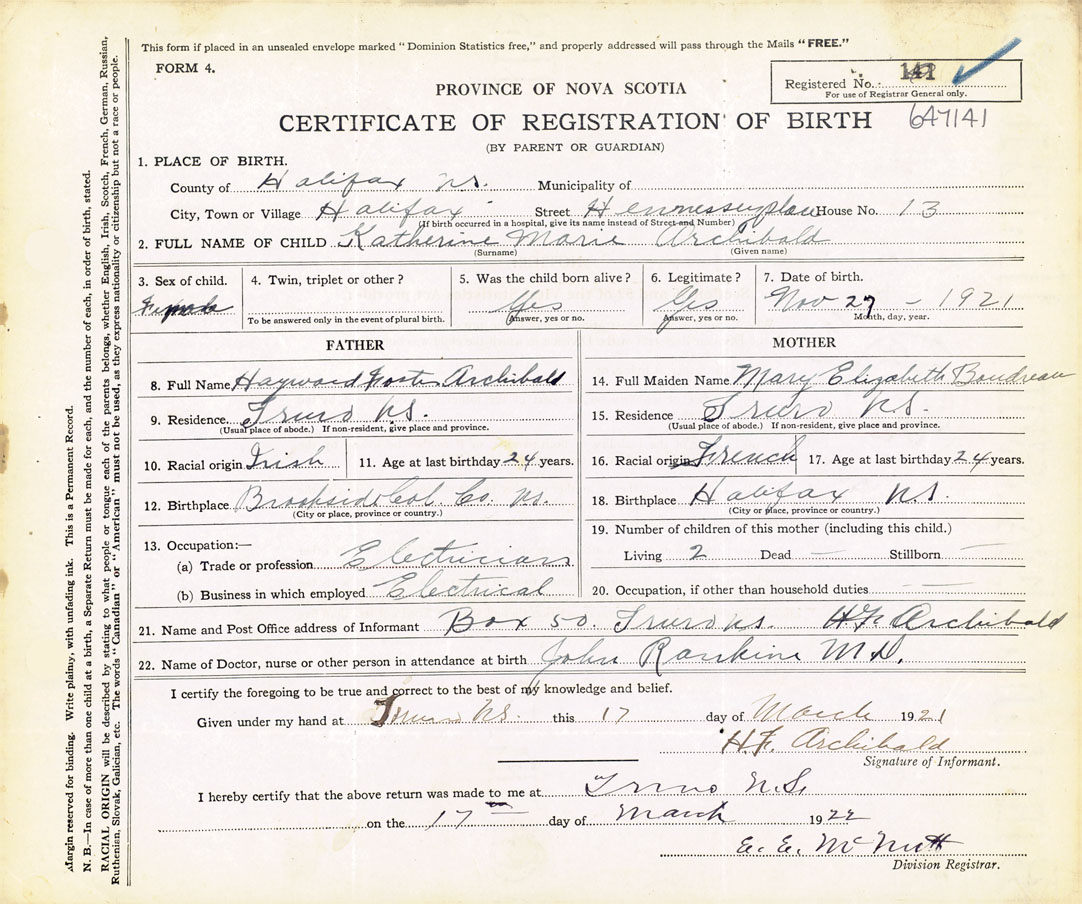 This form if placed in an unsealed envelope marked "Dominion Statistics free," and properly addressed will pass through the Mails "FREE."
FORM 4.
Registered No. 141
For use of Registrar General only.
PROVINCE OF NOVA SCOTIA
CERTIFICATE OF REGISTRATION OF BIRTH
647141
(BY PARENT OR GUARDIAN)
1. PLACE OF BIRTH.
County of Halifax N.S. Municipality of
City, Town or Village Halifax Street Hennessey place House No. 13
(If birth occurred in a hospital, give its name instead of Street and Number)
2. FULL NAME OF CHILD Katherine Marie Archibald
(Surname) (Given name)
3. Sex of child. 4. Twin, triplet or other? 5. Was the child born alive? 6. Legitimate? 7. Date of birth.
Female Yes Yes Nov 27 - 1921
To be answered only in the event of plural birth. Answer, yes or no. Answer, yes or no. Month, day, year.
FATHER
8. Full Name Hayward Foster Archibald
9. Residence Truro N.S.
(Usual place of abode.) If non-resident, give place and province.
10. Racial origin Irish 11. Age at last birthday 24 years.
12. Birthplace Brookside Col. Co. N.S.
(City or place, province or country.)
13. Occupation:—
(a) Trade or profession Electrician
(b) Business in which employed Electrical
MOTHER
14. Full Maiden Name Mary Elizabeth Boudreau
15. Residence Truro N.S.
(Usual place of abode.) If non-resident, give place and province.
16. Racial origin French 17. Age at last birthday 24 years.
18. Birthplace Halifax N.S.
(City or place, province or country.)
19. Number of children of this mother (including this child.)
Living 2 Dead — Stillborn —
20. Occupation, if other than household duties —
21. Name and Post Office address of Informant Box 50. Truro N.S. H.F. Archibald
22. Name of Doctor, nurse or other person in attendance at birth John Rankine M.D.
I certify the foregoing to be true and correct to the best of my knowledge and belief.
Given under my hand at Truro N.S. this 17 day of March 1921
H.F. Archibald
Signature of Informant.
I hereby certify that the above return was made to me at Truro N.S.
on the 17th day of March 1922
E. E. McNutt
Division Registrar.
Margin reserved for binding. Write plainly, with unfading ink. This is a Permanent Record.
N. B.—In case of more than one child at a birth, a Separate Return must be made for each, and the number of each, in order of birth, stated.
RACIAL ORIGIN will be described by stating to what people or tongue each of the parents belongs, whether English, Irish, Scotch, French, German, Russian,
Ruthenian, Slovak, Galician, etc. The words "Canadian" or "American" must not be used, as they express nationality or citizenship but not a race or people.